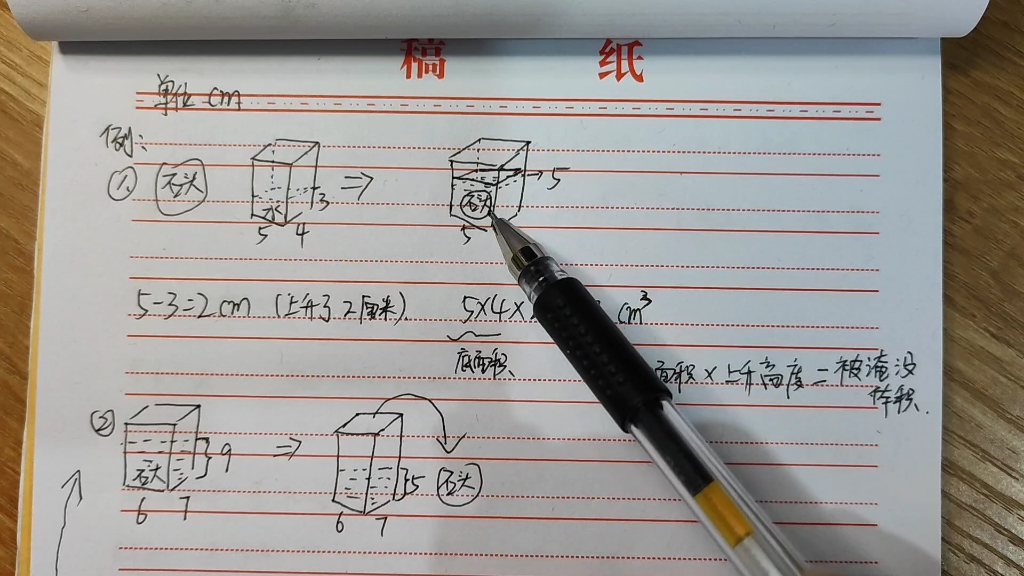 稿 纸
单位 cm
例:
① 石头 水 3 5 4 ⇒ 石头 5 5
5-3=2cm (上升了2厘米). 5×4× cm³
底面积
面积×上升高度=被淹没
体积.
② 石头 9 6 7 ⇒ 5 6 7 石头